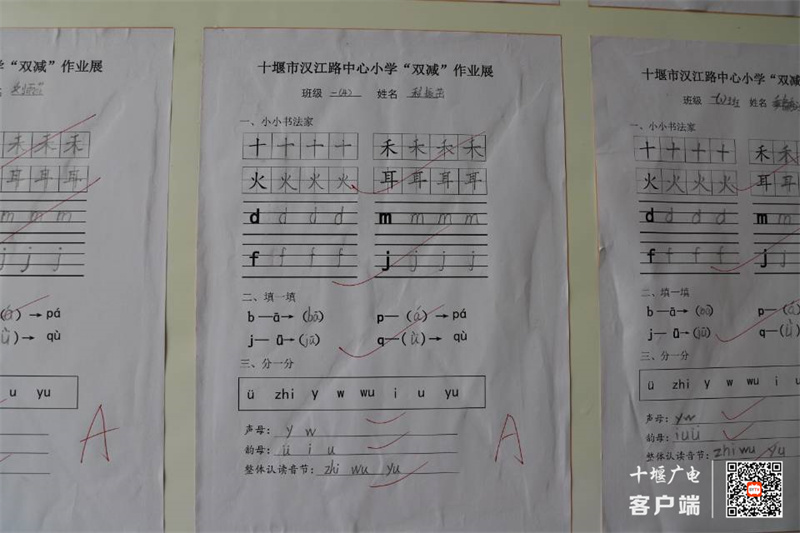 学“双减”作业展
禾 禾 禾
耳 耳 耳
m m m
j j j
(á)→ pá
(ǜ)→ qù
u yu
A
十堰市汉江路中心小学“双减”作业展
班级 一(4) 姓名
一、小小书法家
十 十 十 十 禾 禾 禾 禾
火 火 火 火 耳 耳 耳 耳
d d d d m m m m
f f f f j j j j
二、填一填
b —ā→(bā) p—(á)→ pá
j— ǖ→(jū) q—(ǜ)→ qù
三、分一分
ü zhi y w wu i u yu
声母: y w
韵母: ü i u
整体认读音节: zhi wu yu
A
十堰市汉江路中心小学“双减”作业展
班级 姓名
一、小小书法家
十 十 十 十 禾 禾
火 火 火 火 耳 耳
d d d d m
f f f f j
二、填一填
b —ā→(bā) p—(á)
j— ǖ→(jū) q—(ǜ)
三、分一分
ü zhi y w wu i u
声母: y w
韵母: i u ü
整体认读音节: zhi wu yu
十堰广电
客户端